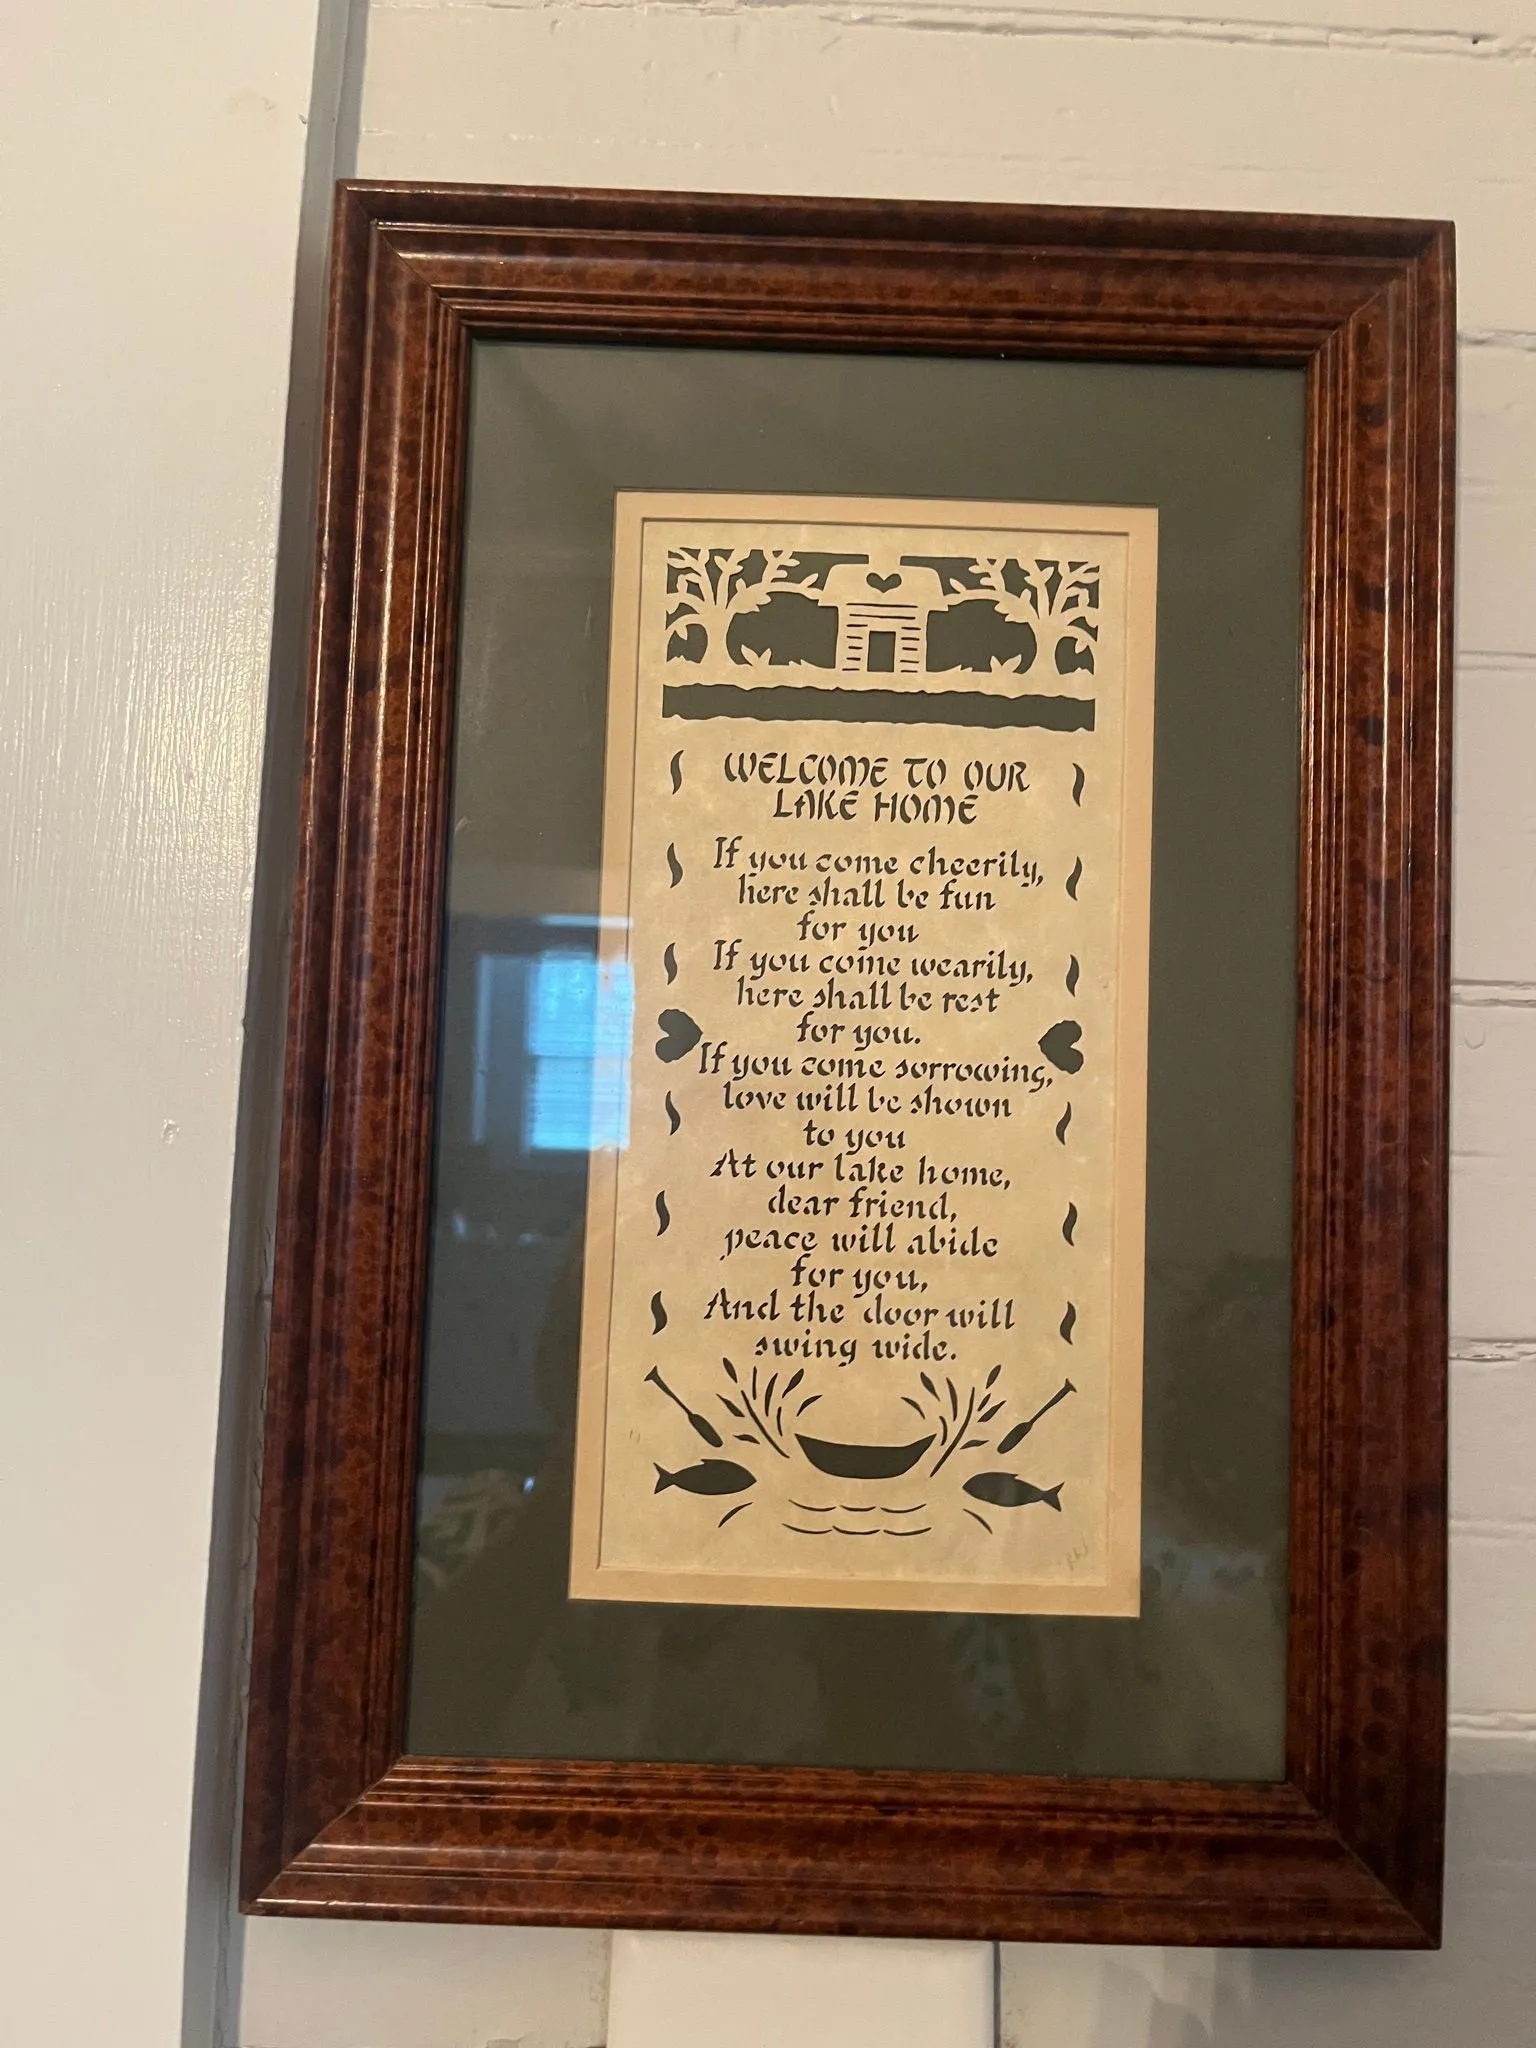 WELCOME TO OUR
LAKE HOME
If you come cheerily,
here shall be fun
for you
If you come wearily,
here shall be rest
for you.
If you come sorrowing,
love will be shown
to you
At our lake home,
dear friend,
peace will abide
for you,
And the door will
swing wide.